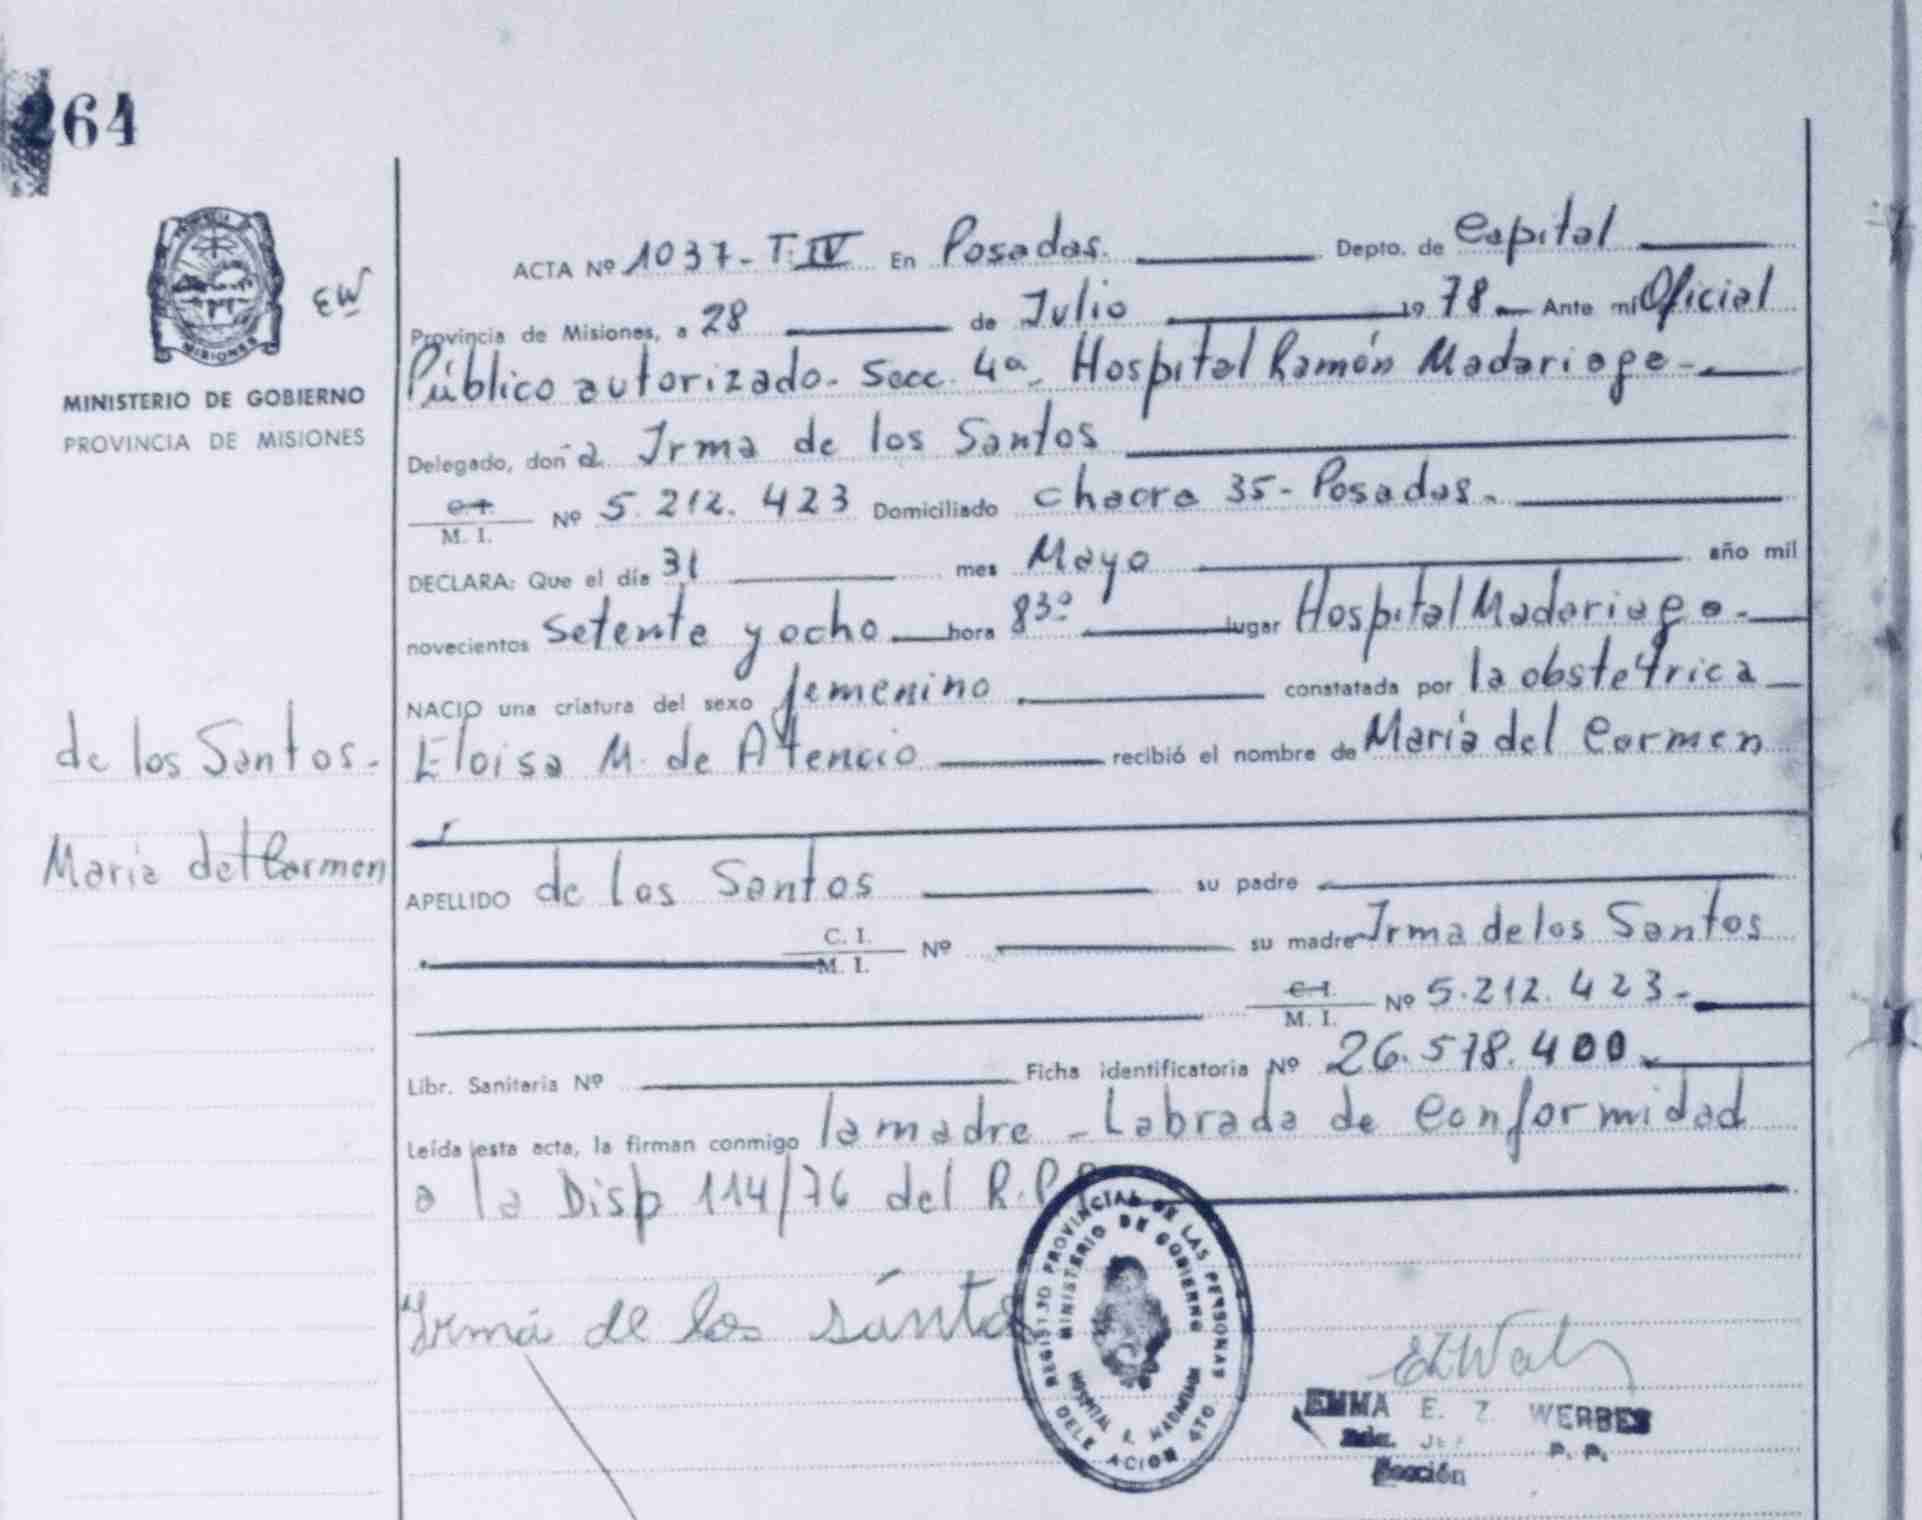 264
ACTA Nº 1037-T.IV En Posadas. Depto. de Capital
EW
Provincia de Misiones, a 28 de Julio 1978 Ante mi Oficial
MINISTERIO DE GOBIERNO
PROVINCIA DE MISIONES
MISIONES
Público autorizado. Secc. 4a. Hospital Ramón Madariaga-
Delegado, don a Irma de los Santos
C.I. M. I. Nº 5.212.423 Domiciliado chacra 35-Posadas.
DECLARA: Que el día 31 mes Mayo año mil
novecientos setenta y ocho hora 830 lugar Hospital Madariaga.-
NACIO una criatura del sexo femenino constatada por la obstetrica
Eloisa M. de Atencio recibió el nombre de María del Carmen
de los Santos.-
Maria del Carmen
APELLIDO de los Santos su padre
C. I. M. I. Nº su madre Irma de los Santos
C.I. M. I. Nº 5.212.423-
Libr. Sanitaria Nº Ficha identificatoria Nº 26.578.400
Leída esta acta, la firman conmigo la madre - Labrada de Conformidad
a la Disp 114/76 del R.P.
Irma de los sántos
REGISTRO PROVINCIAL DE LAS PERSONAS
MINISTERIO DE GOBIERNO
HOSPITAL R. MADARIAGA
DELEGACION 4TO
EMMA E. Z. WERBES
P. P.
Sección